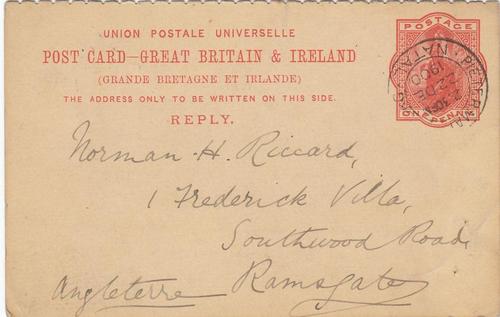 UNION POSTALE UNIVERSELLE
POST CARD—GREAT BRITAIN & IRELAND
(GRANDE BRETAGNE ET IRLANDE)
THE ADDRESS ONLY TO BE WRITTEN ON THIS SIDE.
REPLY.
POSTAGE
ONE PENNY
NATAL
DE
1900
Norman H. Riccard,
1 Frederick Villa,
Southwood Road,
Ramsgate
Angleterre